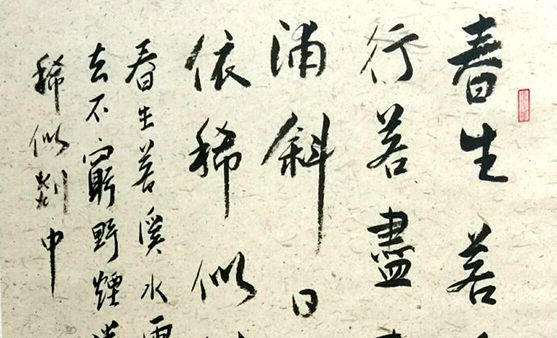 春生若
行若盡
浦斜日
依稀似
春生若溪水雨
去不窮野煙
稀似剡中